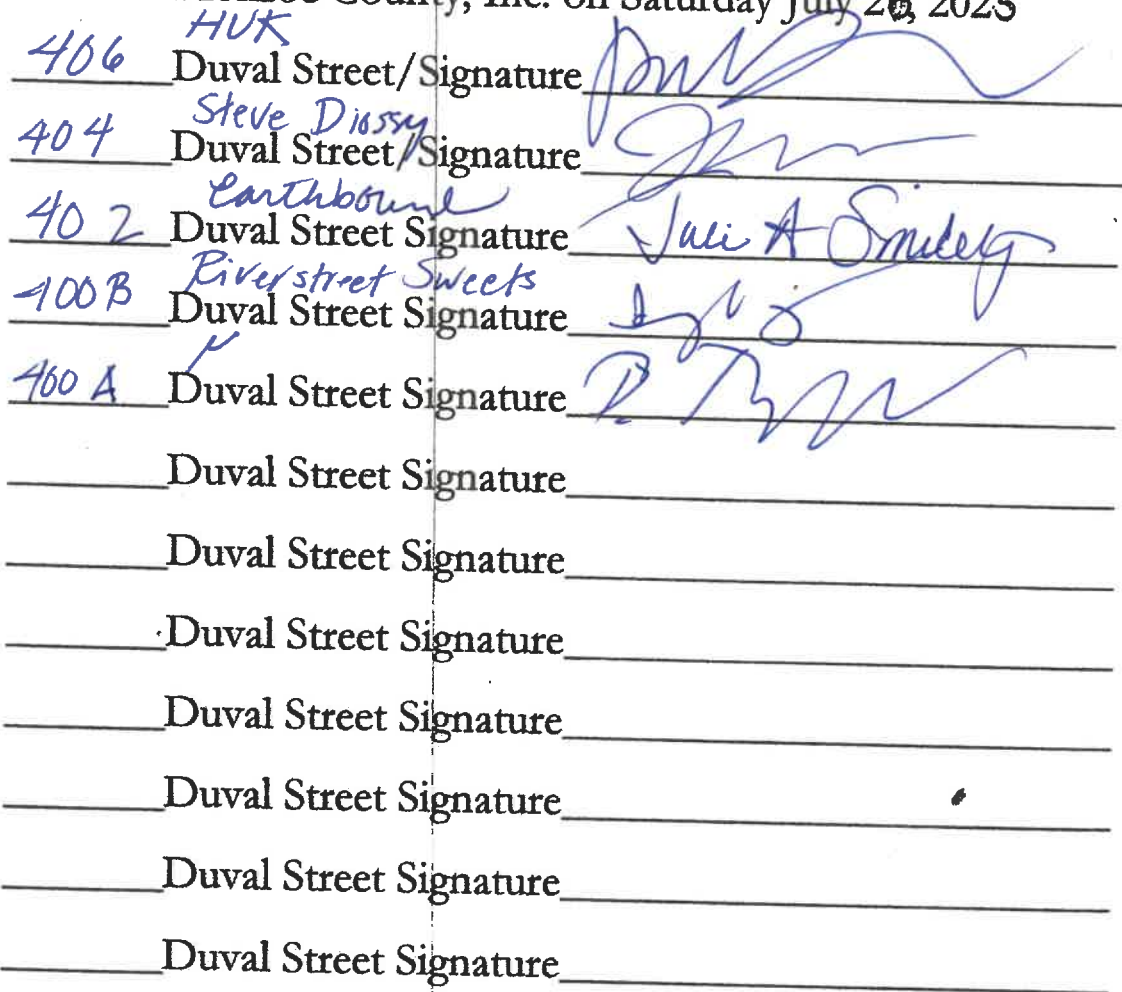 County, Inc. on Saturday July 2 2025
HUK
406 Duval Street/Signature
Steve Diossy
404 Duval Street/Signature
Earthbound
402 Duval Street Signature Juli A Smiley
Riverstreet Sweets
400B Duval Street Signature
"
400 A Duval Street Signature
Duval Street Signature
Duval Street Signature
Duval Street Signature
Duval Street Signature
Duval Street Signature
Duval Street Signature
Duval Street Signature